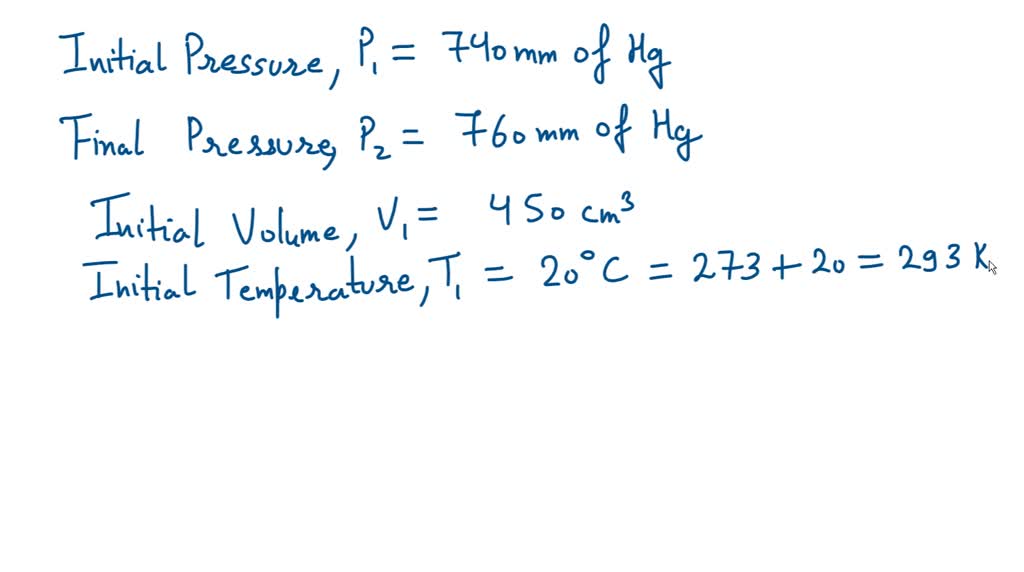 Initial Pressure, P₁ = 740 mm of Hg
Final Pressure, P₂ = 760 mm of Hg
Initial Volume, V₁ = 450 cm³
Initial Temperature, T₁ = 20°C = 273 + 20 = 293 K